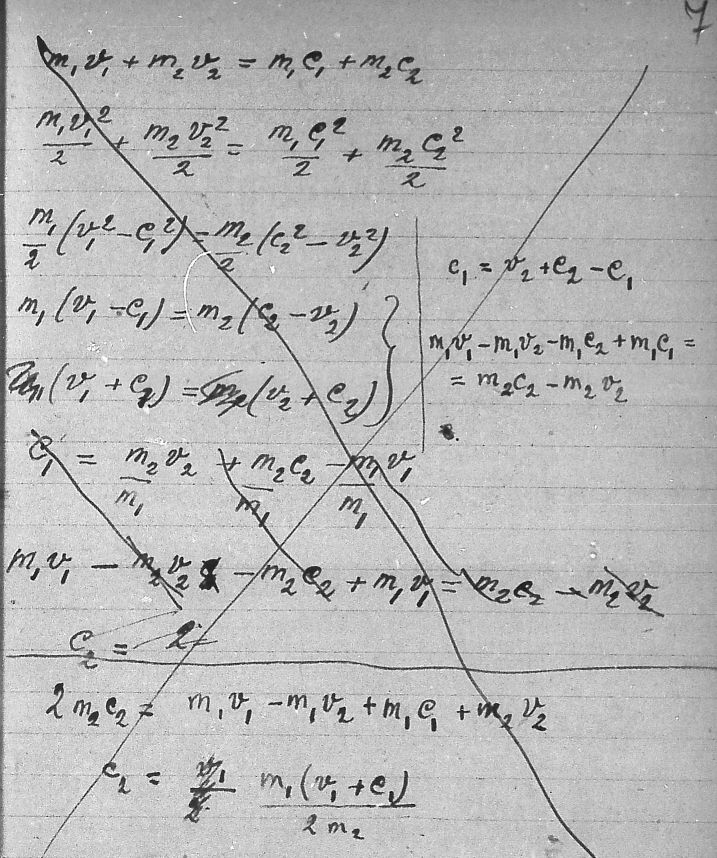 7
m₁v₁ + m₂v₂ = m₁c₁ + m₂c₂
m₁v₁²/2 + m₂v₂²/2 = m₁c₁²/2 + m₂c₂²/2
m₁/2 (v₁² − c₁²) = m₂/2 (c₂² − v₂²)
m₁(v₁ − c₁) = m₂(c₂ − v₂)
(v₁ + c₁) = (v₂ + c₂)
c₁ = v₂ + c₂ − c₁
m₁v₁ − m₁v₂ − m₁c₂ + m₁c₁ =
= m₂c₂ − m₂v₂
c₁ = m₂v₂/m₁ + m₂c₂/m₁ − m₁v₁/m₁
m₁v₁ − m₂v₂ − m₂c₂ + m₁v₁ = m₂c₂ − m₂v₂
c₂ = 2
2m₂c₂ = m₁v₁ − m₁v₂ + m₁c₁ + m₂v₂
c₂ = m₁(v₁ + c₁)/2m₂